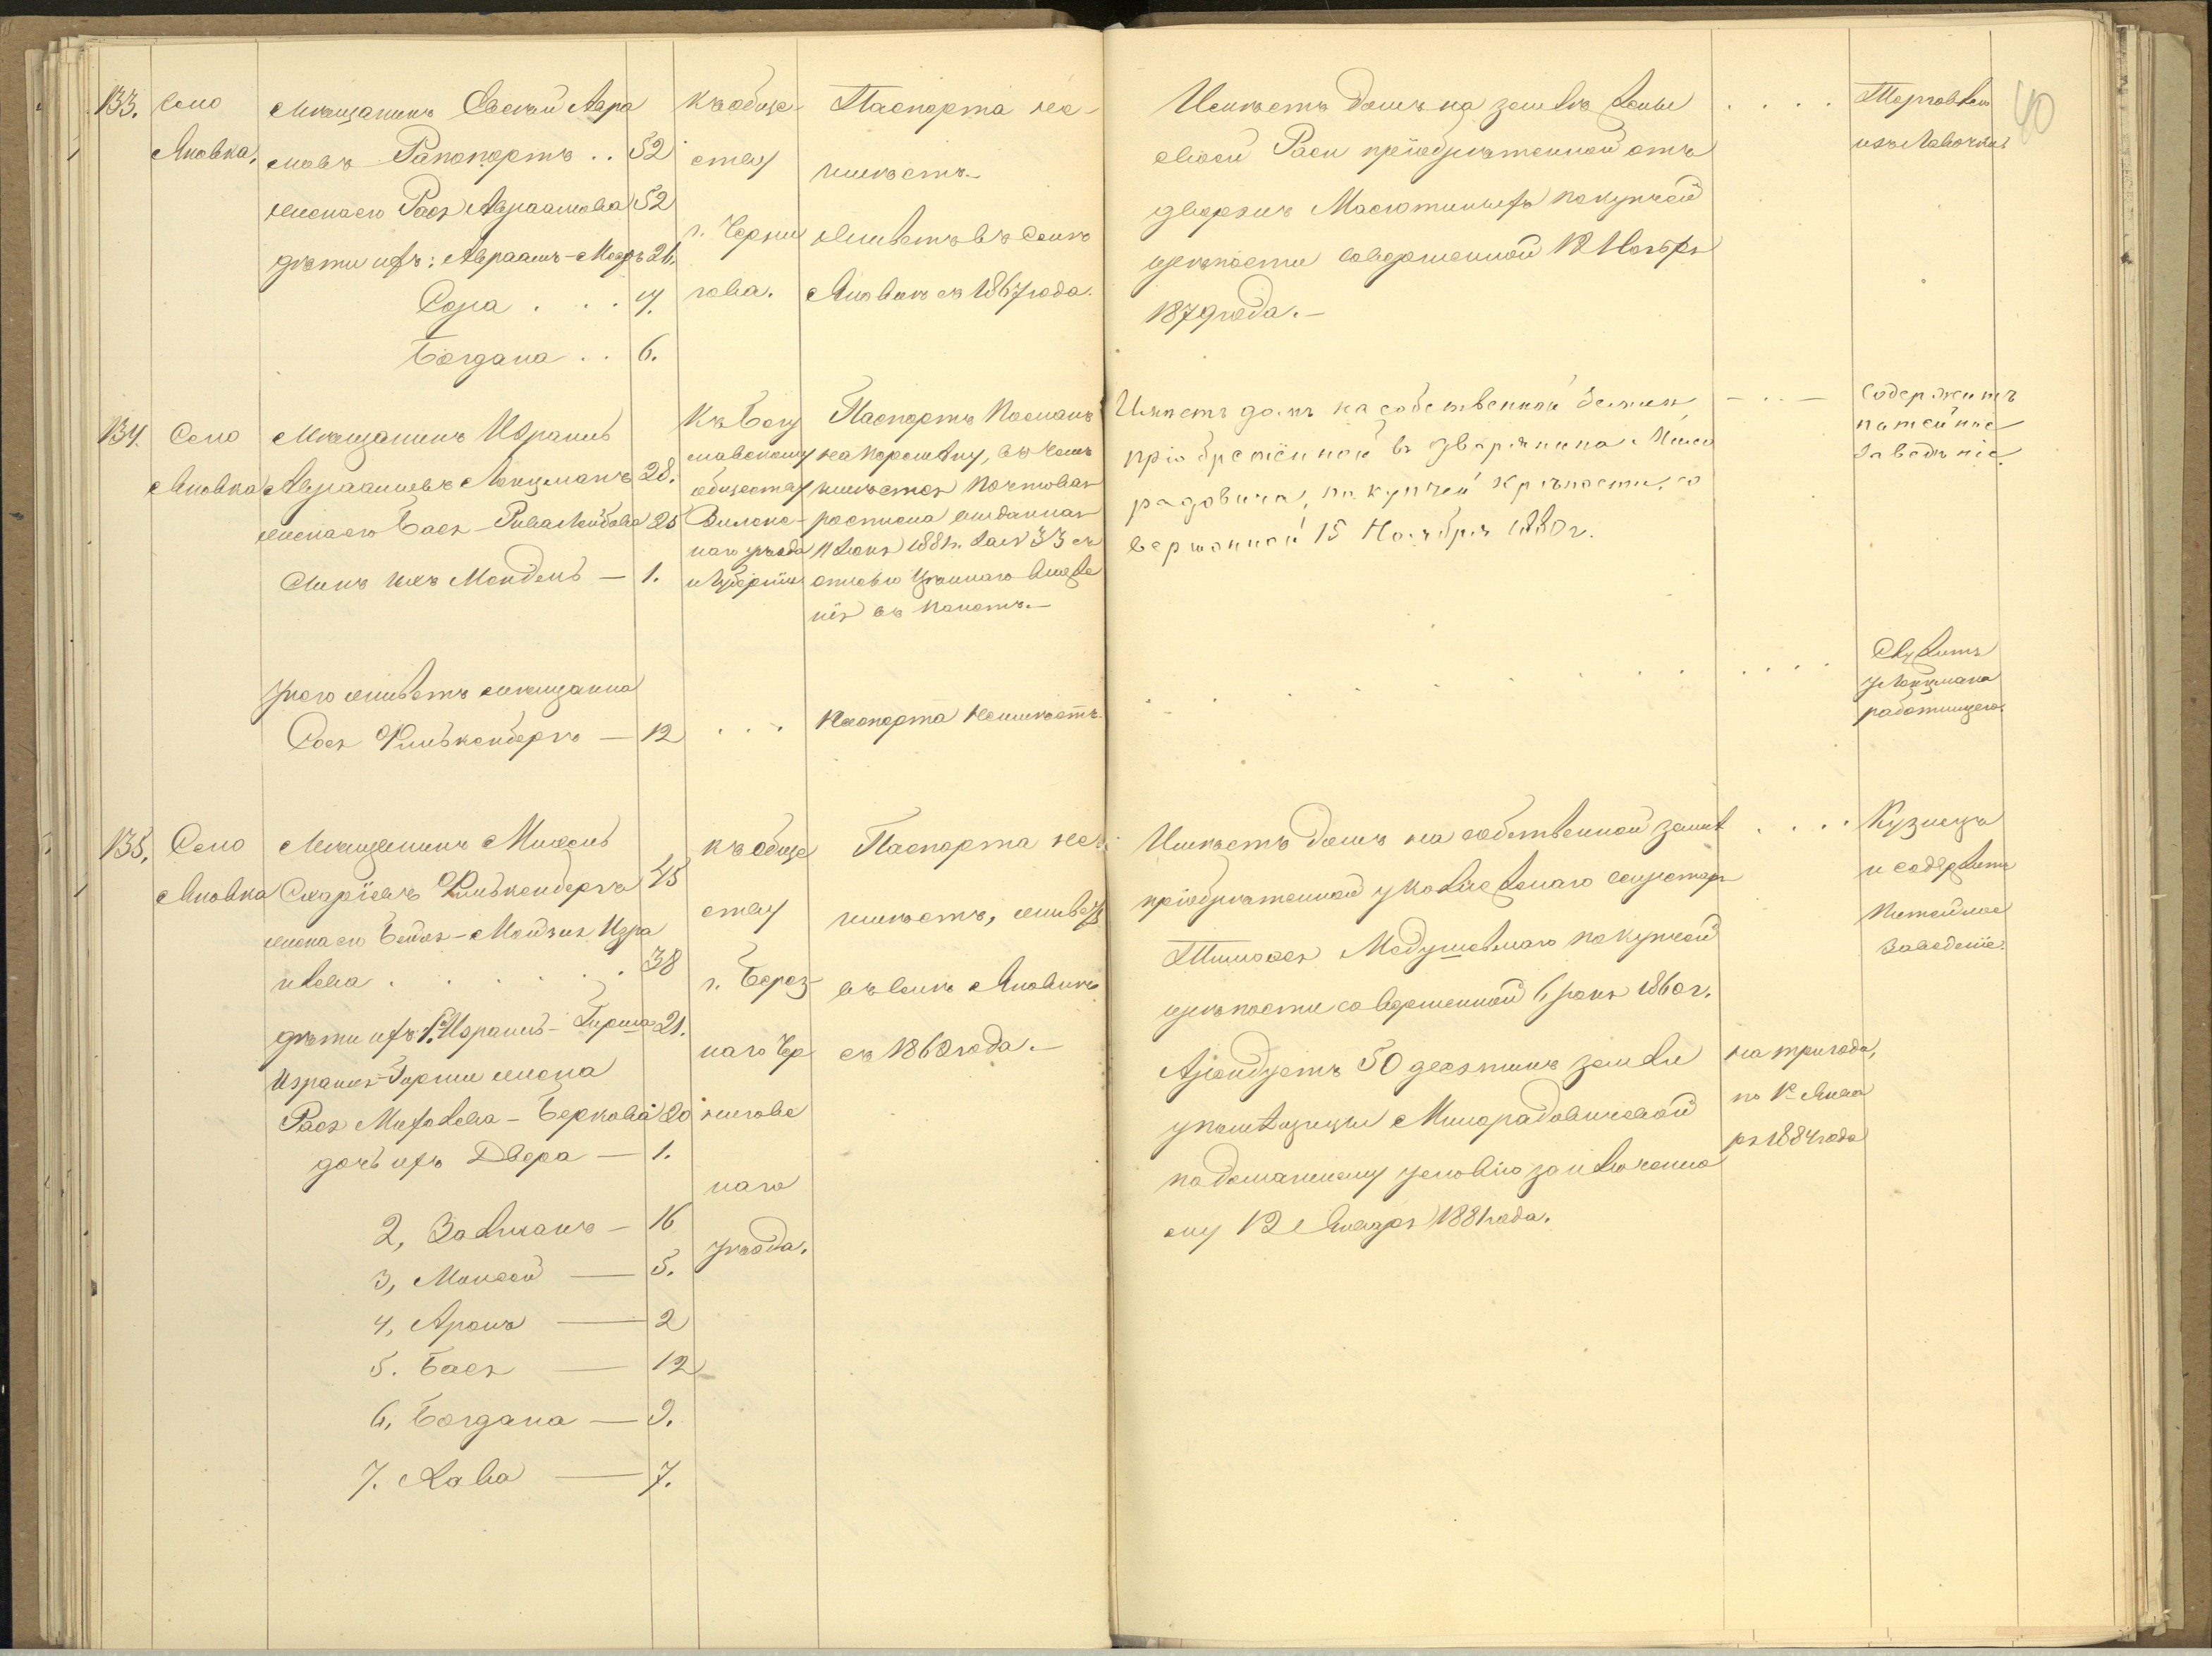 40
133. Село
Яновка,
Мѣщанинъ Евсѣй Авра
мовъ Рапопортъ . . 52
жена его Рася Авраамова 52
дѣти ихъ: Авраамъ-Меэръ 26.
Сора . . . 14.
Богдана . . 6.
Къ обще-
ству
г. Черни
гова.
Паспорта не-
имѣетъ.
живетъ въ селѣ
Яновкѣ съ 1867 года.
Имѣетъ домъ на землѣ жены
своей Раси пріобрѣтенной отъ
дворянъ покупчей
крѣпости совершенной 12 Ноября
1879 года.
. . . .
Торговля
изъ лавочки
134. Село
Яновка
Мѣщанинъ Израиль
Авраамовъ Локцманъ 28.
жена его Бася-Рива Лейбова 25
сынъ ихъ Мендель — 1.
Къ Богу
славскому
обществу
Виленс-
каго уѣзда
и Губерніи
Паспортъ посланъ
на перемѣну, въ чемъ
имѣется почтовая
росписка выданная
11 1881 г. за № 33 съ
отмѣткою
нія въ пакетъ.
Имѣетъ домъ на собственной земли,
пріобретенной въ дварянина Мило
радовича, по купчей крѣпости, со
вершонной 15 Ноября 1880 г.
Содержитъ
питейное
заведѣніе.
у него живетъ мѣщанка
Сося Фильконбергъ — 12
. . .
Паспорта неимѣетъ.
Служитъ
у Локцмана
работницею.
135. Село
Яновка
Мѣщанинъ Михель
Сахаріевъ Фильконбергъ 45
жена его Бейля-Мойзия Изра
илева . . . . . . 38
дѣти ихъ: 1. Израиль-Гирша 21.
Израиля-Гирши жена
Рася Михелева-Беркова 20
дочь ихъ Двера — 1.
2, Залманъ — 16
3, Моисей — 5.
4, Аронъ — 2
5. Бася — 12
6, Богдана — 9.
7. Хава — 7.
къ обще
ству
г. Берез
наго Чер
нигов
наго
уѣзда.
Паспорта не-
имѣетъ, живетъ
въ селѣ Яновкѣ
съ 1860 года.
Имѣетъ домъ на собственной земл
пріобрѣтенной у Коллежскаго секретаря
Тимофея Медушевскаго покупчей
крѣпости совершенной 6 1860 г.
Арендуетъ 50 десятинъ земли
у помѣщицы Милорадовичевой
по домашнему условію заключенно
му 12 Января 1881 года.
на три года,
по 1е Янва
ря 1884 года
Кузнецъ
и содержитъ
питейное
заведеніе.